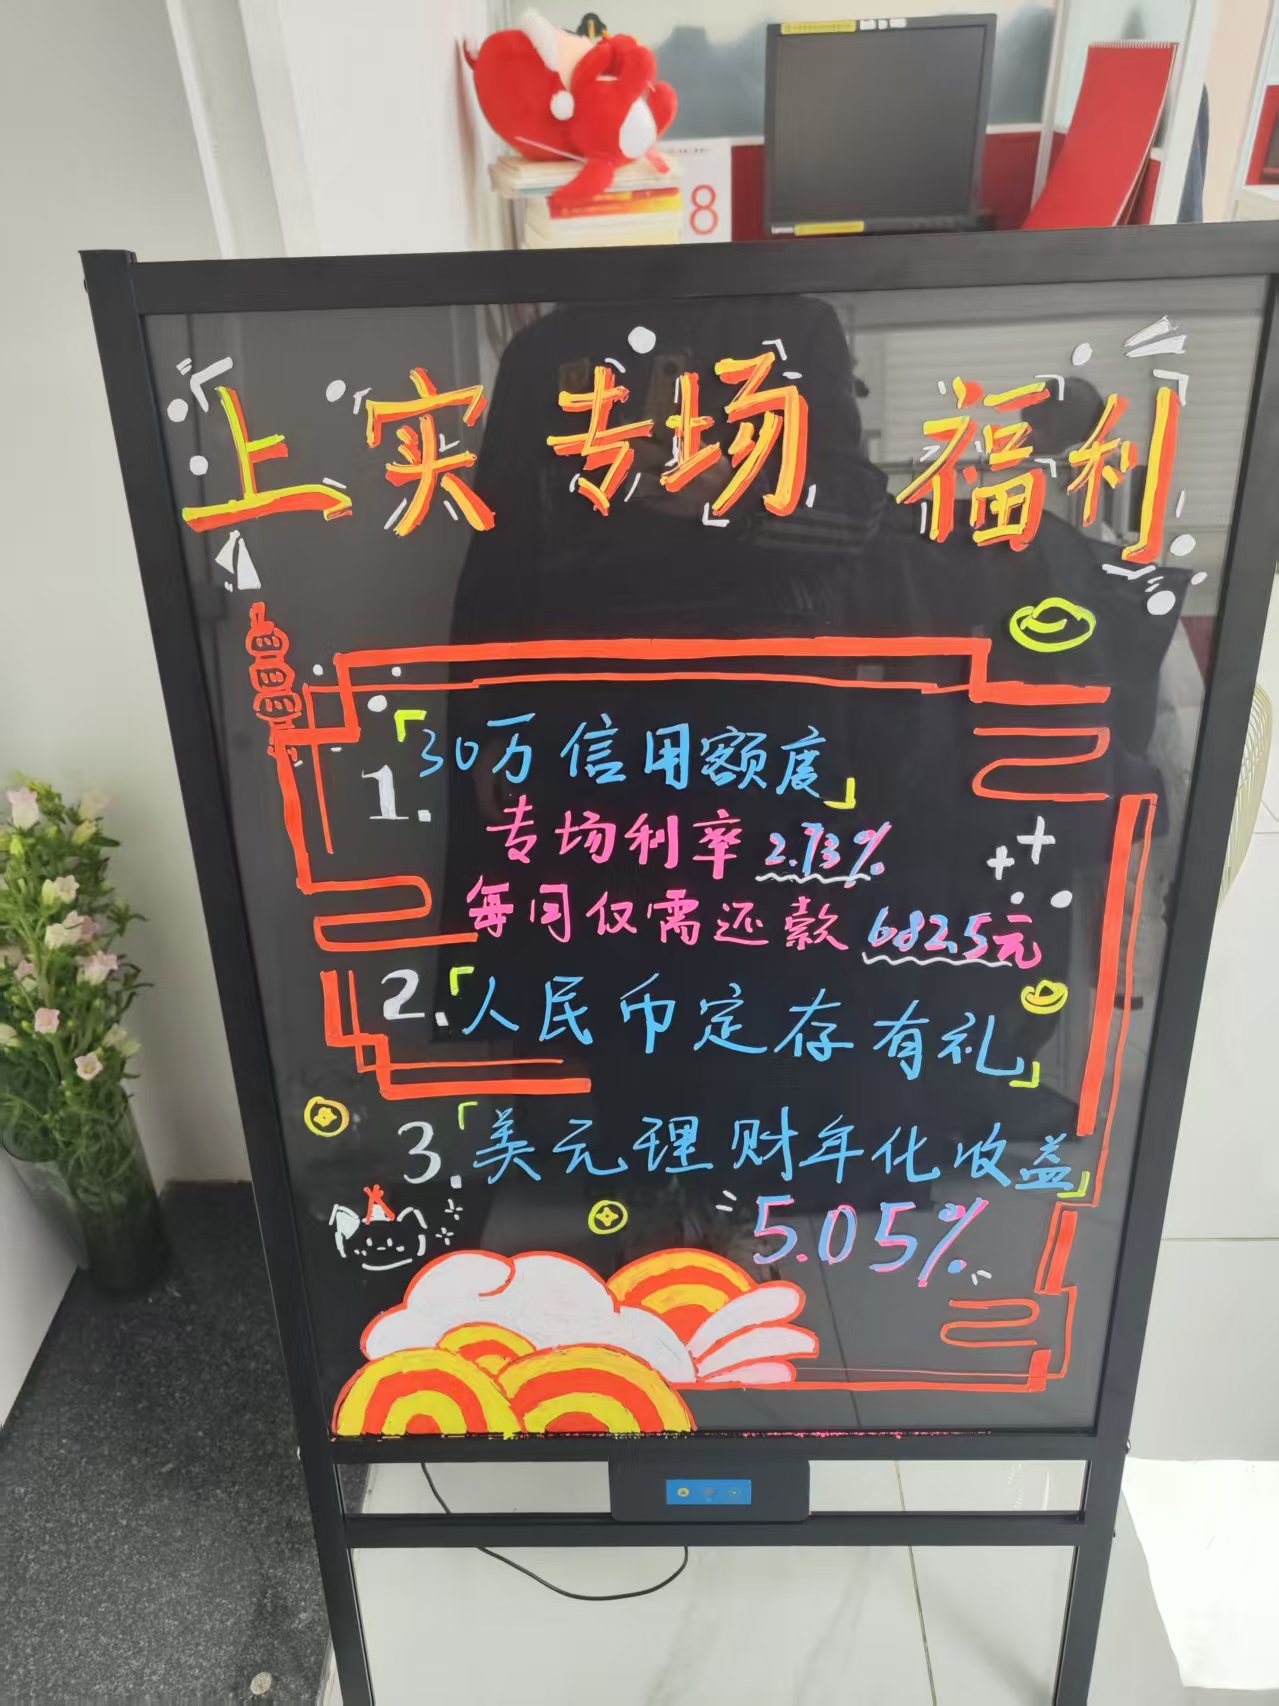 8
上实专场 福利
1.「30万信用额度」
专场利率2.73%
每月仅需还款682.5元
2.「人民币定存有礼」
3.「美元理财年化收益」
5.05%